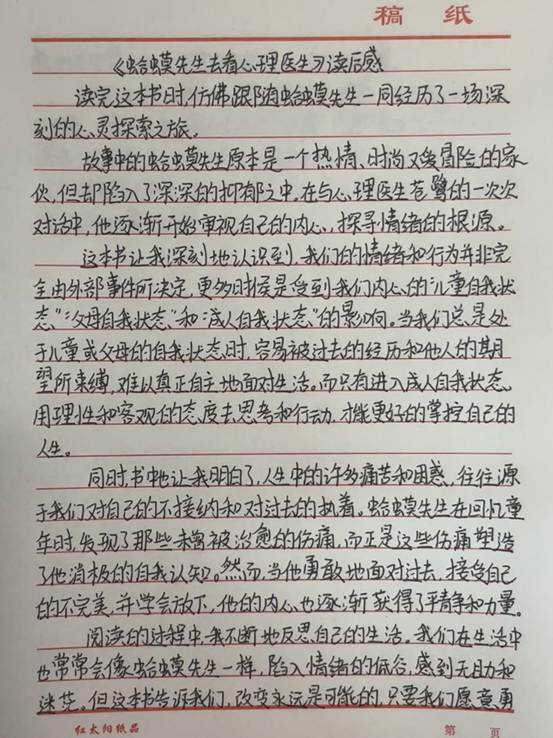 稿 纸
《蛤蟆先生去看心理医生》读后感
读完这本书时,仿佛跟随蛤蟆先生一同经历了一场深
刻的心灵探索之旅。
故事中的蛤蟆先生原本是一个热情、时尚又爱冒险的家
伙,但却陷入了深深的抑郁之中,在与心理医生苍鹭的一次次
对话中,他逐渐开始审视自己的内心,探寻情绪的根源。
这本书让我深刻地认识到,我们的情绪和行为并非完
全由外部事件所决定,更多时候是受到我们内心的“儿童自我状
态”“父母自我状态”和“成人自我状态”的影响。当我们总是处
于儿童或父母的自我状态时,容易被过去的经历和他人的期
望所束缚,难以真正自主地面对生活。而只有进入成人自我状态,
用理性和客观的态度去思考和行动,才能更好的掌控自己的
人生。
同时,书中也让我明白了,人生中的许多痛苦和困惑,往往源
于我们对自己的不接纳和对过去的执着。蛤蟆先生在回忆童
年时,发现了那些未曾被治愈的伤痛,而正是这些伤痛塑造
了他消极的自我认知。然而,当他勇敢地面对过去,接受自己
的不完美,并学会放下,他的内心也逐渐获得了平静和力量。
阅读的过程中,我不断地反思自己的生活。我们在生活中
也常常会像蛤蟆先生一样,陷入情绪的低谷,感到无助和
迷茫。但这本书告诉我们,改变永远是可能的,只要我们愿意勇
红太阳纸品 第 页